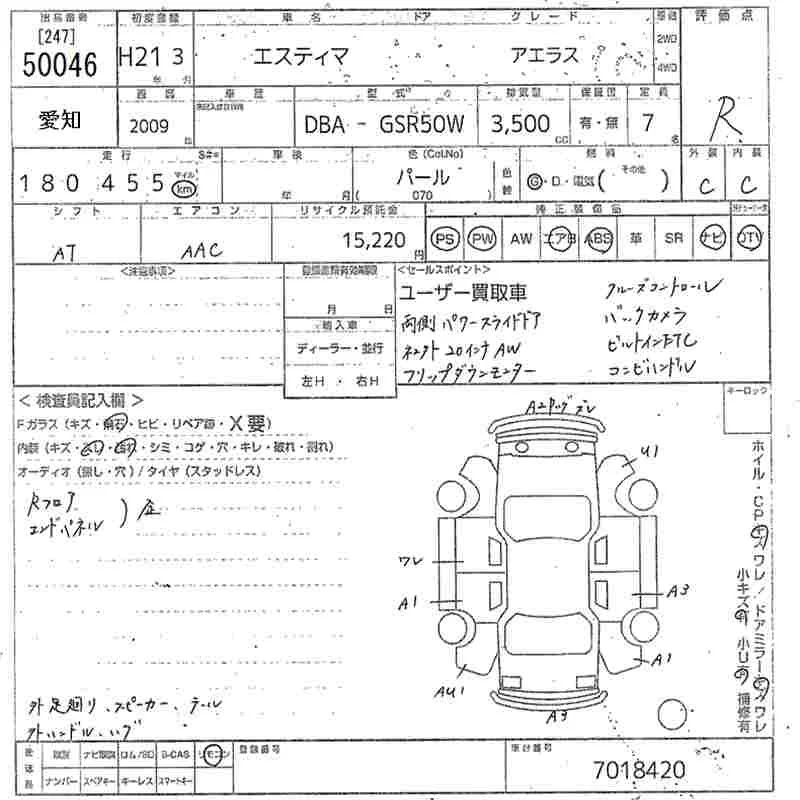 出品番号 初度登録 車名 ドア グレード 駆動 評価点
[247]
50046 H21 3 エスティマ アエラス 2WD 4WD
R
愛知
2009
型式 排気量 保証書 定員
DBA - GSR50W 3,500 cc 有・無 7 名
走行 S#= 車検 色(Col.No) 燃料 外装 内装
180455 マイル km 年 月 パール ( 070 ) 色替 G・D・電気 ( その他 ) C C
シフト エアコン リサイクル預託金 純正装備品
AT AAC 15,220 円 PS PW AW エアB ABS 革 SR ナビ DTV
<注意事項> 登録書類有効期限 <セールスポイント>
月 日
輸入車
ディーラー・並行
左H ・ 右H
ユーザー買取車 クルーズコントロール
両側パワースライドドア バックカメラ
20インチAW ビルトインETC
フリップダウンモニター コンビハンドル
キーロック
< 検査員記入欄 >
Fガラス (キズ・飛石・ヒビ・リペア跡・X要)
内装 (キズ・ ・シミ・コゲ・穴・キレ・破れ・割れ)
オーディオ (無し・穴) / タイヤ (スタッドレス)
Rフロア
エンドパネル
U1
ワレ
A1
A3
A1
AU1
A3
ホイル・CP キズ ワレ / ドアミラー キズ ワレ
小キズ有 小U有 補修有
外足廻り、スピーカー、テール
外ハンドル、ハブ
後送品 取説 ナビ取説 ロム/SD B-CAS リモコン 登録番号 車台番号
ナンバー スペアキー キーレス スマートキー 7018420